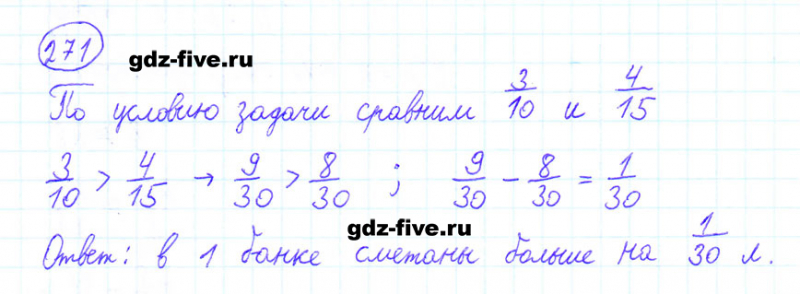 271
gdz-five.ru
По условию задачи сравним 3/10 и 4/15
3/10 > 4/15 → 9/30 > 8/30 ; 9/30 - 8/30 = 1/30
gdz-five.ru
Ответ: в 1 банке сметаны больше на 1/30 л.